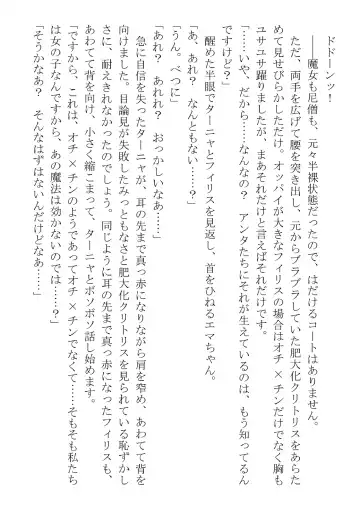 ドドーンッ！
――魔女も尼僧も、元々半裸状態だったので、はだけるコートはありません。
ただ、両手を広げて腰を突き出し、元からブラブラしていた肥大化クリトリスをあらた
めて見せびらかしただけ。オッパイが大きなフィリスの場合はオチ×チンだけでなく胸も
ユサユサ躍りましたが、まあそれだけと言えばそれだけです。
「……いや、だから……なんなの？　アンタたちにそれが生えているのは、もう知ってるん
ですけど？」
「あ、あれ？　なんともない……？」
「うん。べつに」
醒めた半眼でターニャとフィリスを見返し、首をひねるエマちゃん。
「あれ？　あれれ？　おっかしいなあ……」
急に自信を失ったターニャが、耳の先まで真っ赤になりながら肩を窄め、あわてて背を
向けました。目論見が失敗したみっともなさと肥大化クリトリスを見られている恥ずかし
さに、耐えきれなかったのでしょう。同じように耳の先まで真っ赤になったフィリスも、
あわてて背を向け、小さく縮こまって、ターニャとボソボソ話し始めます。
「ですから、これは、オチ×チンのようであってオチ×チンでなくて……そもそも私たち
は女の子なんですから、あの魔法は効かないのでは……？」
「そうかなあ？　そんなはずはないんだけどなあ……」